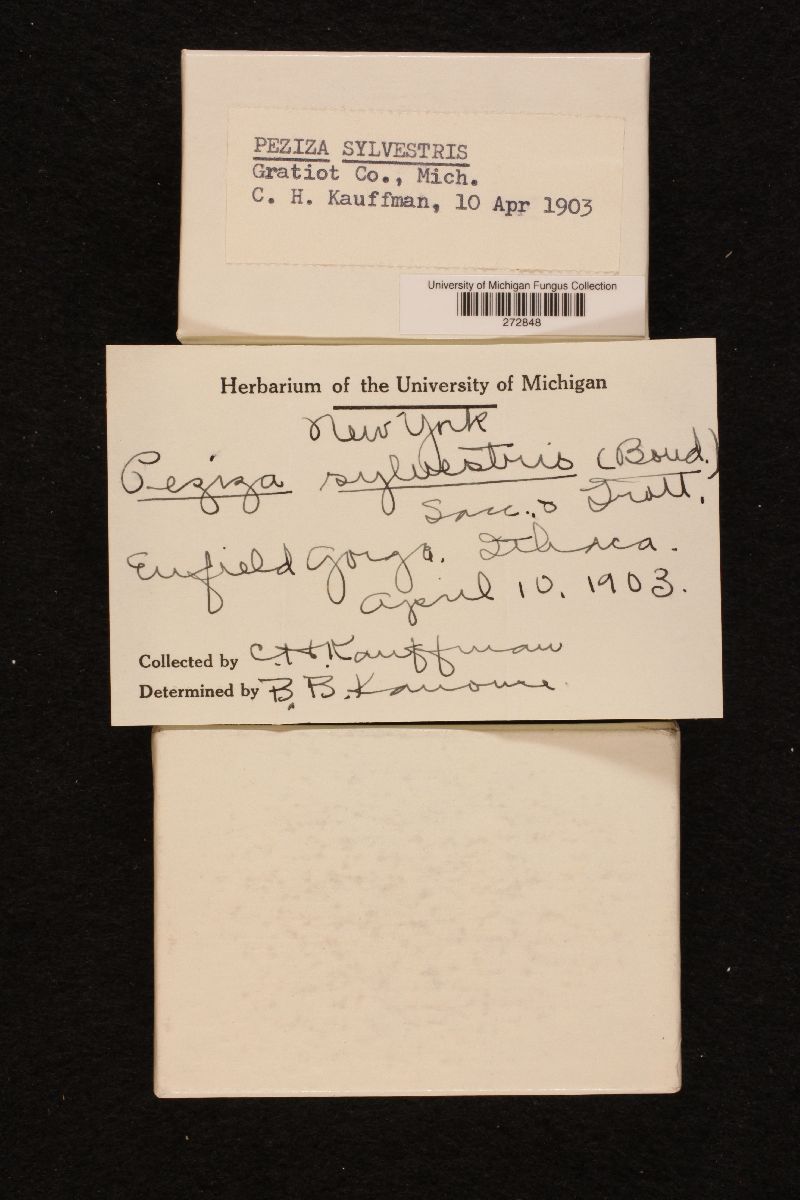 PEZIZA SYLVESTRIS
Gratiot Co., Mich.
C. H. Kauffman, 10 Apr 1903
University of Michigan Fungus Collection
272848
Herbarium of the University of Michigan
New York
Peziza sylvestris (Boud.)
Sacc. & Trott.
Enfield Gorge. Ithaca.
April 10. 1903.
Collected by C.H.Kauffman
Determined by B.B.Kanouse